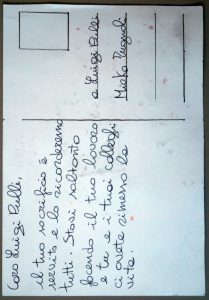 Caro Luigi Pulli,
il tuo sacrificio è
servito e lo ricorderemo
tutti. Stavi soltanto
facendo il tuo lavoro
e tu e i tuoi colleghi
ci avete rimesso la
vita.
a Luigi Pulli
Mirko